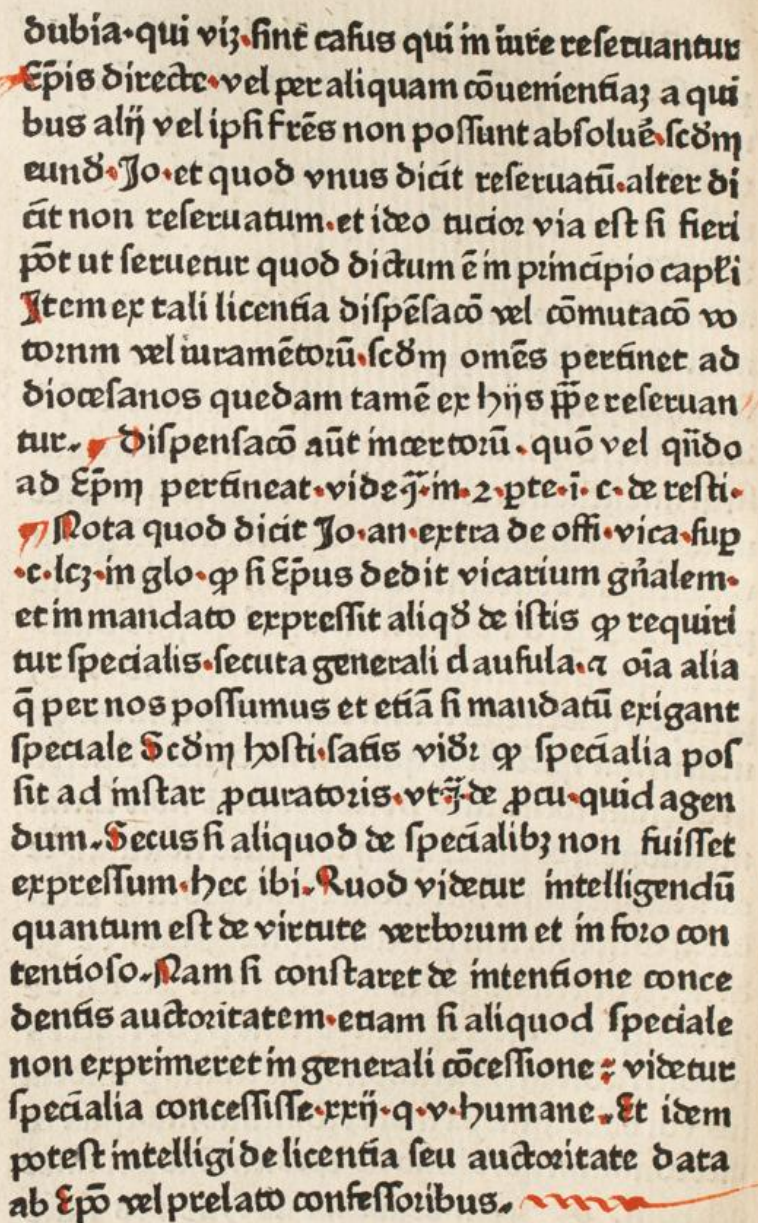 dubia·qui viꝫ·sint casus qui in iure reseruantur
Ep̄is directe·vel per aliquam cōuenientiaꝫ a qui
bus alij vel ipsi fr̄es non possunt absoluē·scd̄m
eund̄·Jo·et quod vnus dicit reseruatū·alter di
cit non reseruatum·et ideo tucior via est si fieri
pōt ut seruetur quod dictum ē in principio capłi
Item ex tali licentia dispēsacō vel cōmutacō vo
tornm vel iuramētorū·scd̄m omēs pertinet ad
diocesanos quedam tamē ex hijs ꝑꝑe reseruan
tur. dispensacō aūt incertorū·quō vel qn̄do
ad Ep̄m pertineat·vide j̄·in·2·ꝑte·i·c·de resti·
Nota quod dicit Jo·an·extra de offi·vica·suꝑ
·c·lcꝫ·in glo·ꝙ si Ep̄us dedit vicarium gn̄alem·
et in mandato expressit aliqd̄ de istis ꝙ requiri
tur specialis·secuta generali clausula·⁊ oīa alia
q̄ per nos possumus et etiā si mandatū exigant
speciale Scd̄m hosti·satis vidr̄ ꝙ specialia pos
sit ad instar ꝓcuratoris·vt j̄·de ꝓcu·quid agen
dum·Secus si aliquod de specialibꝫ non fuisset
expressum·hec ibi·Quod videtur intelligendū
quantum est de virtute verborum et in foro con
tentioso·Nam si constaret de intentione conce
dentis auctoritatem·etiam si aliquod speciale
non exprimeret in generali cōcessione : videtur
specialia concessisse·xxij·q·v·humane·Et idem
potest intelligi de licentia seu auctoritate data
ab Ep̄o vel prelato confessoribus.